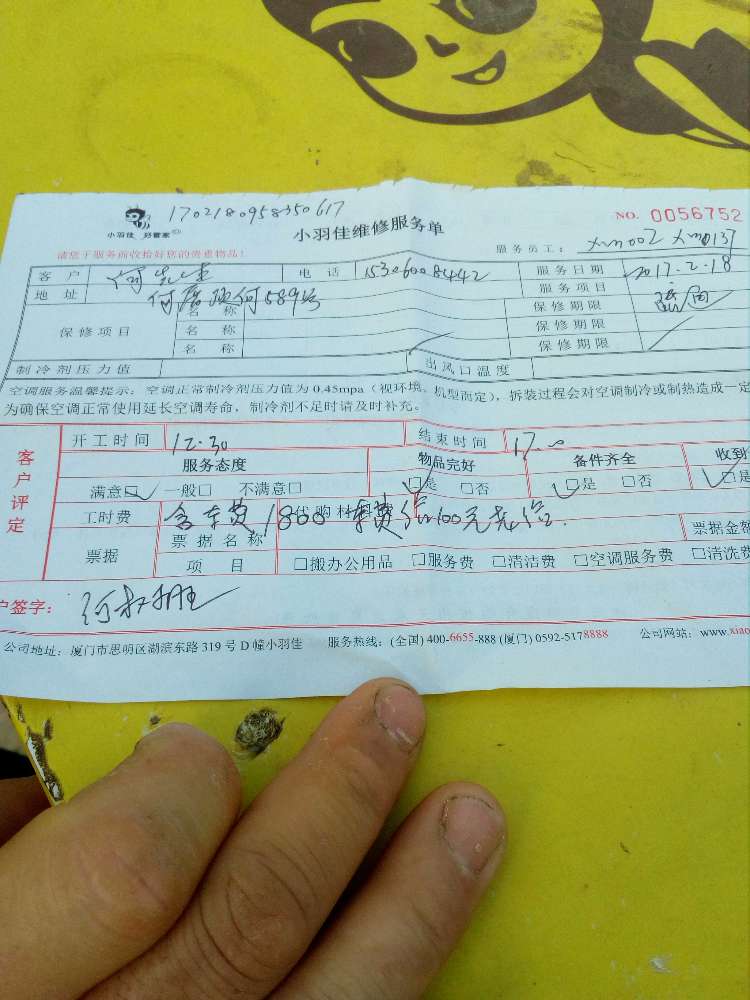 1702180958350617
小羽佳 好管家
小羽佳维修服务单
NO. 0056752
请您于服务前收拾好您的贵重物品!
服务员工: xm002 xm0137
客户 何先生 电话 15306008442 服务日期 2017.2.18
地址 何厝顶何589号 服务项目
保修项目 名称 保修期限
名称 保修期限
名称 保修期限
制冷剂压力值 出风口温度
空调服务温馨提示: 空调正常制冷剂压力值为 0.45mpa (视环境、机型而定), 拆装过程会对空调制冷或制热造成一定
为确保空调正常使用延长空调寿命, 制冷剂不足时请及时补充。
客户评定
开工时间 12.30 结束时间 17.00
服务态度 物品完好 备件齐全 收到
满意□ 一般□ 不满意□ □是 □否 □是 □否 □是
工时费 含车费 1800 代购材料费
票据 票据名称 票据金额
项目 □搬办公用品 □服务费 □清洁费 □空调服务费 □清洗费
户签字:
公司地址: 厦门市思明区湖滨东路 319 号 D 幢小羽佳 服务热线: (全国) 400-6655-888 (厦门) 0592-5178888 公司网站: www.xiao